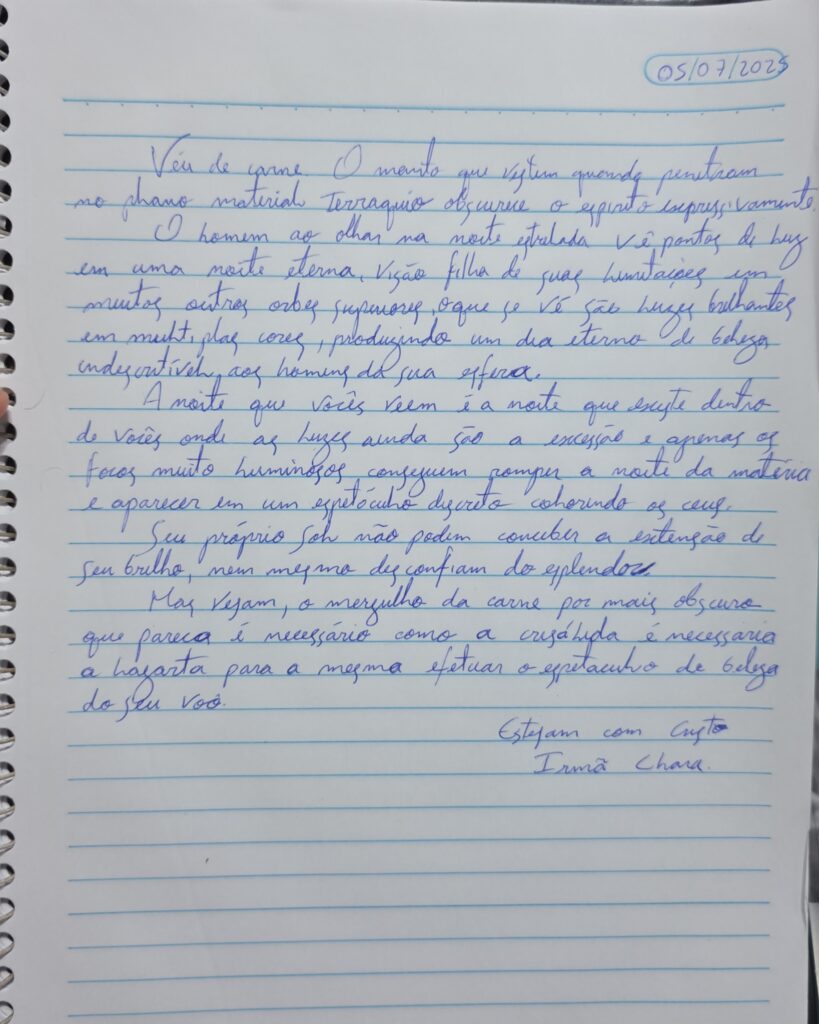 05/07/2025
Véu de carne. O manto que vestem quando penetram
no plano material Terraquio obscurece o espirito expressivamente.
O homem ao olhar na noite estrelada vê pontos de luz
em uma noite eterna, visão filha de suas limitações em
muitos outros orbes superiores, o que se vê são luzes brilhantes
em multiplas cores, produzindo um dia eterno de beleza
indescritível aos homens da sua esfera.
A noite que vocês veem é a noite que existe dentro
de vocês onde as luzes ainda são a excessão e apenas os
focos muito luminosos conseguem romper a noite da matéria
e aparecer em um espetáculo discreto colorindo os ceus.
Seu próprio sol não podem conceber a extenção de
seu brilho, nem mesmo desconfiam do esplendor.
Mas vejam, o mergulho da carne por mais obscuro
que pareca é necessário como a crisálida é necessária
a lagarta para a mesma efetuar o espetaculo de beleza
do seu voo.
Estejam com Cristo
Irmã Clara.